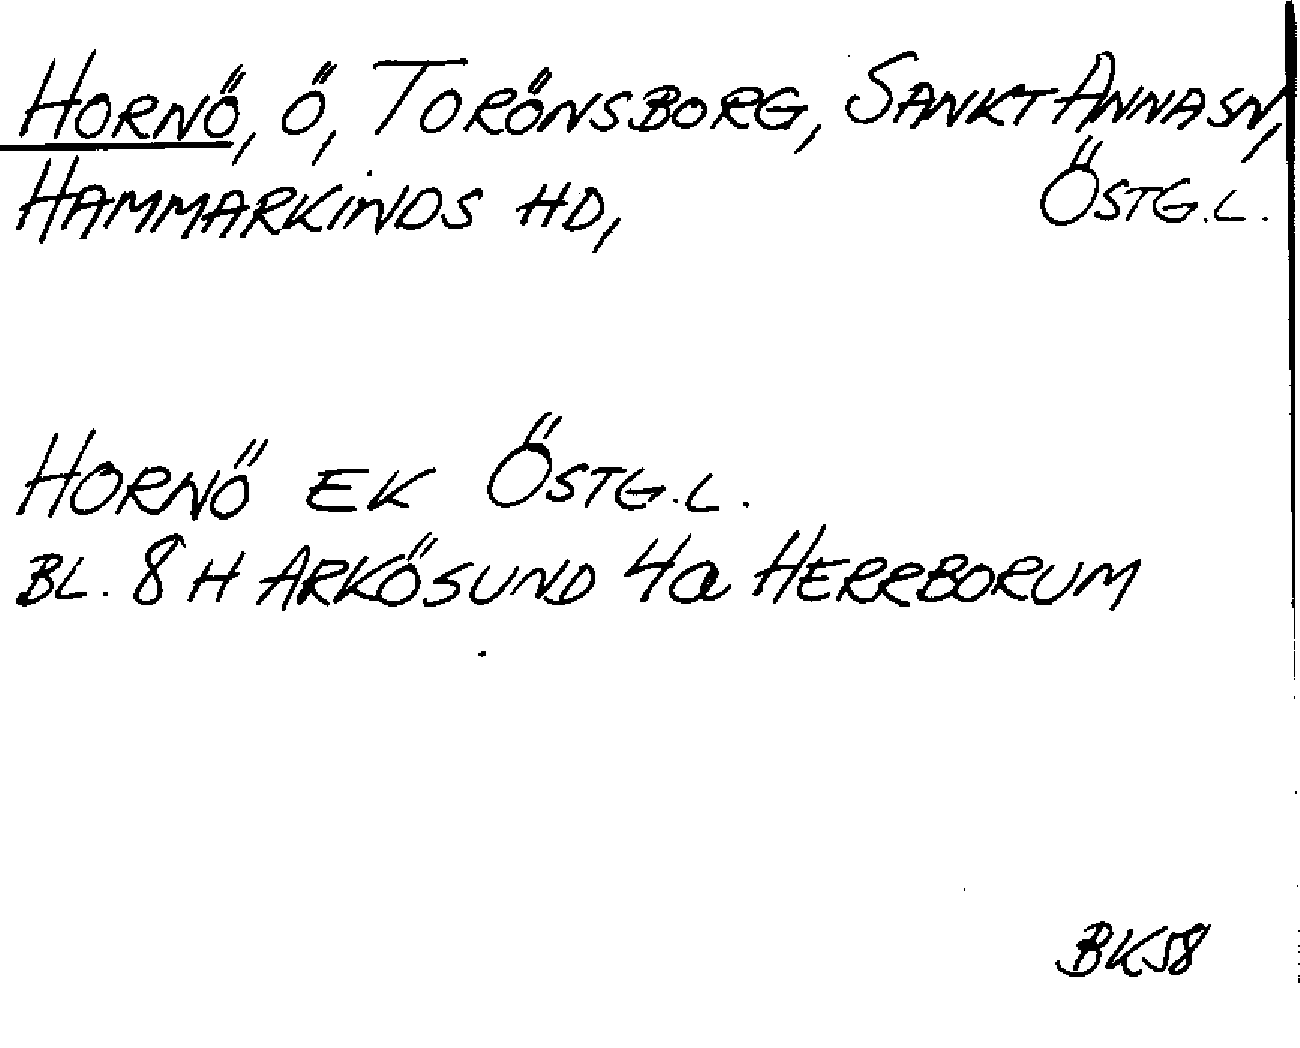 HORNÖ, Ö, TORÖNSBORG, SANKT ANNA SN,
HAMMARKINDS HD, ÖSTG.L.
HORNÖ EK ÖSTG.L.
BL. 8 H ARKÖSUND 4a HERRBORUM
BK58